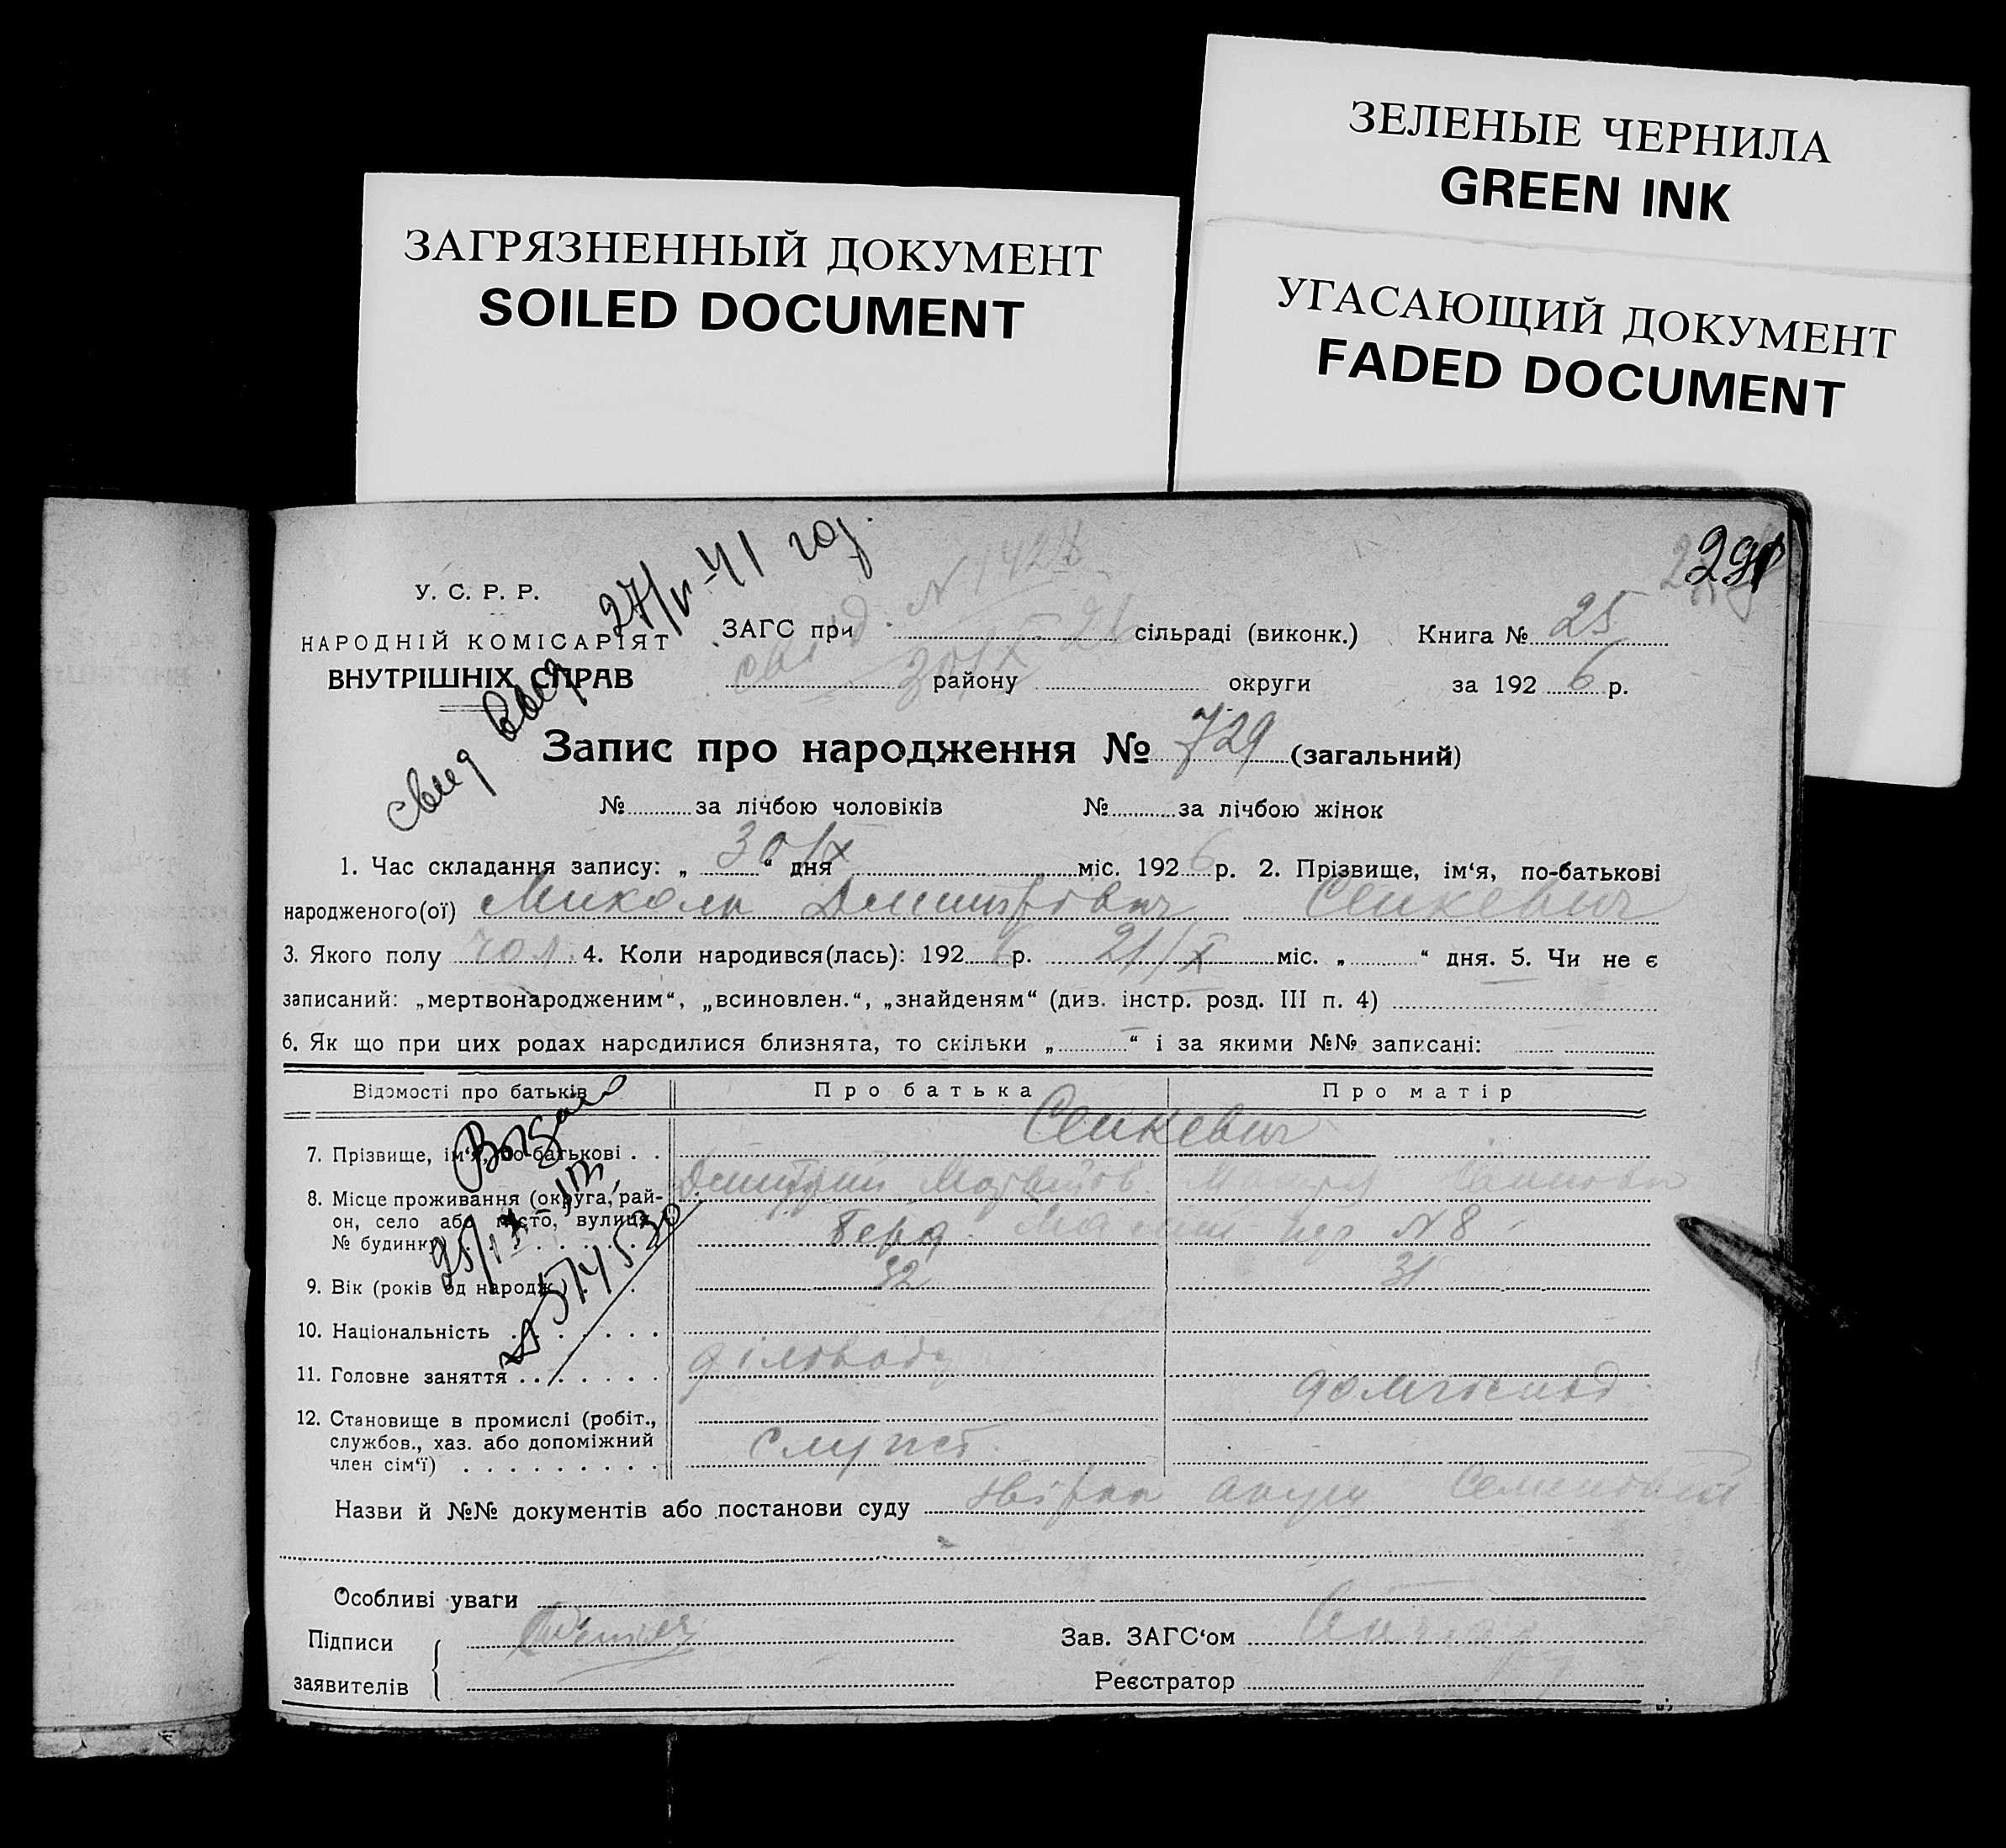 ЗЕЛЕНЫЕ ЧЕРНИЛА
GREEN INK
ЗАГРЯЗНЕННЫЙ ДОКУМЕНТ
SOILED DOCUMENT
УГАСАЮЩИЙ ДОКУМЕНТ
FADED DOCUMENT
291
27/V-41 год.
У. С. Р. Р.
НАРОДНІЙ КОМІСАРІЯТ
ВНУТРІШНІХ СПРАВ
свид выд
ЗАГС при сільраді (виконк.) Книга № 25
району округи за 192 6 р.
Запис про народження № 729 (загальний)
№ за лічбою чоловіків № за лічбою жінок
1. Час складання запису: „ 30/IX “ дня міс. 192 6 р. 2. Прізвище, ім‘я, по-батькові
народженого(ої) Микола Дмитрович Сенкевич
3. Якого полу чол. 4. Коли народився(лась): 192 6 р. 21/X міс. „ “ дня. 5. Чи не є
записаний: „мертвонародженим“, „всиновлен.“, „знайденям“ (див. інстр. розд. III п. 4)
6. Як що при цих родах народилися близнята, то скільки „ “ і за якими №№ записані:
Відомості про батьків Про батька Про матір
7. Прізвище, ім‘я, по-батькові Сенкевич
8. Місце проживання (округа, рай-
он, село або місто, вулиця,
№ будинку) Берд. пер N 8
9. Вік (років од народж.) 32 31
10. Національність
11. Головне заняття діловод домгоспод.
12. Становище в промислі (робіт.,
службов., хаз. або допоміжний
член сім‘ї) служб.
Назви й №№ документів або постанови суду
Особливі уваги
Підписи
заявителів
Зав. ЗАГС‘ом
Реєстратор